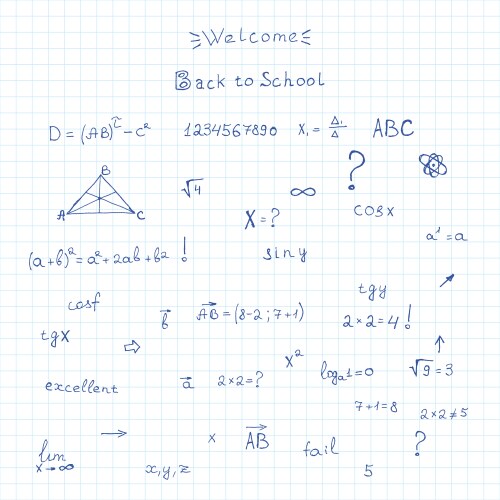 Welcome
Back to School
D = (AB)² - c²
1234567890
X₁ = Δ₁/Δ
ABC
?
B
A C
√4
∞
X = ?
cos x
a¹ = a
(a+b)² = a² + 2ab + b2 !
sin y
tg y
cos f
b⃗
AB⃗ = (8-2 ; 7+1)
2 × 2 = 4 !
tg x
x²
logₐ1 = 0
√9 = 3
excellent
a⃗
2×2=?
7+1=8
2×2≠5
lim x→∞
→
x
AB⃗
fail
?
x, y, z
5